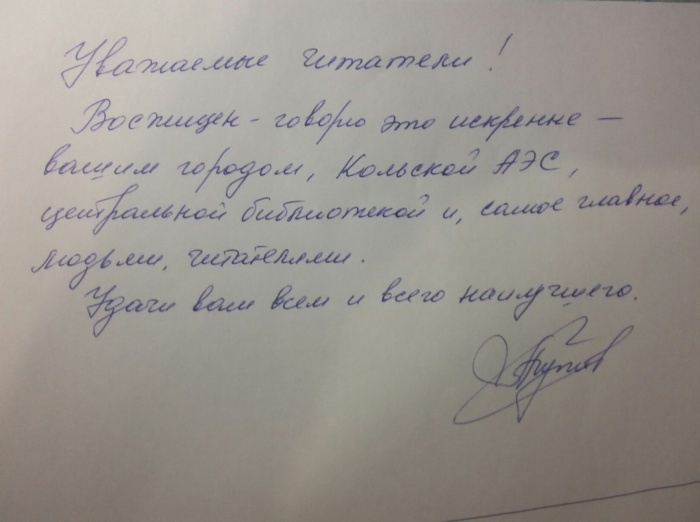 Уважаемые читатели!
Восхищен - говорю это искренне —
вашим городом, Кольской АЭС,
центральной библиотекой и, самое главное,
людьми, читателями.
Удачи вам всем и всего наилучшего.